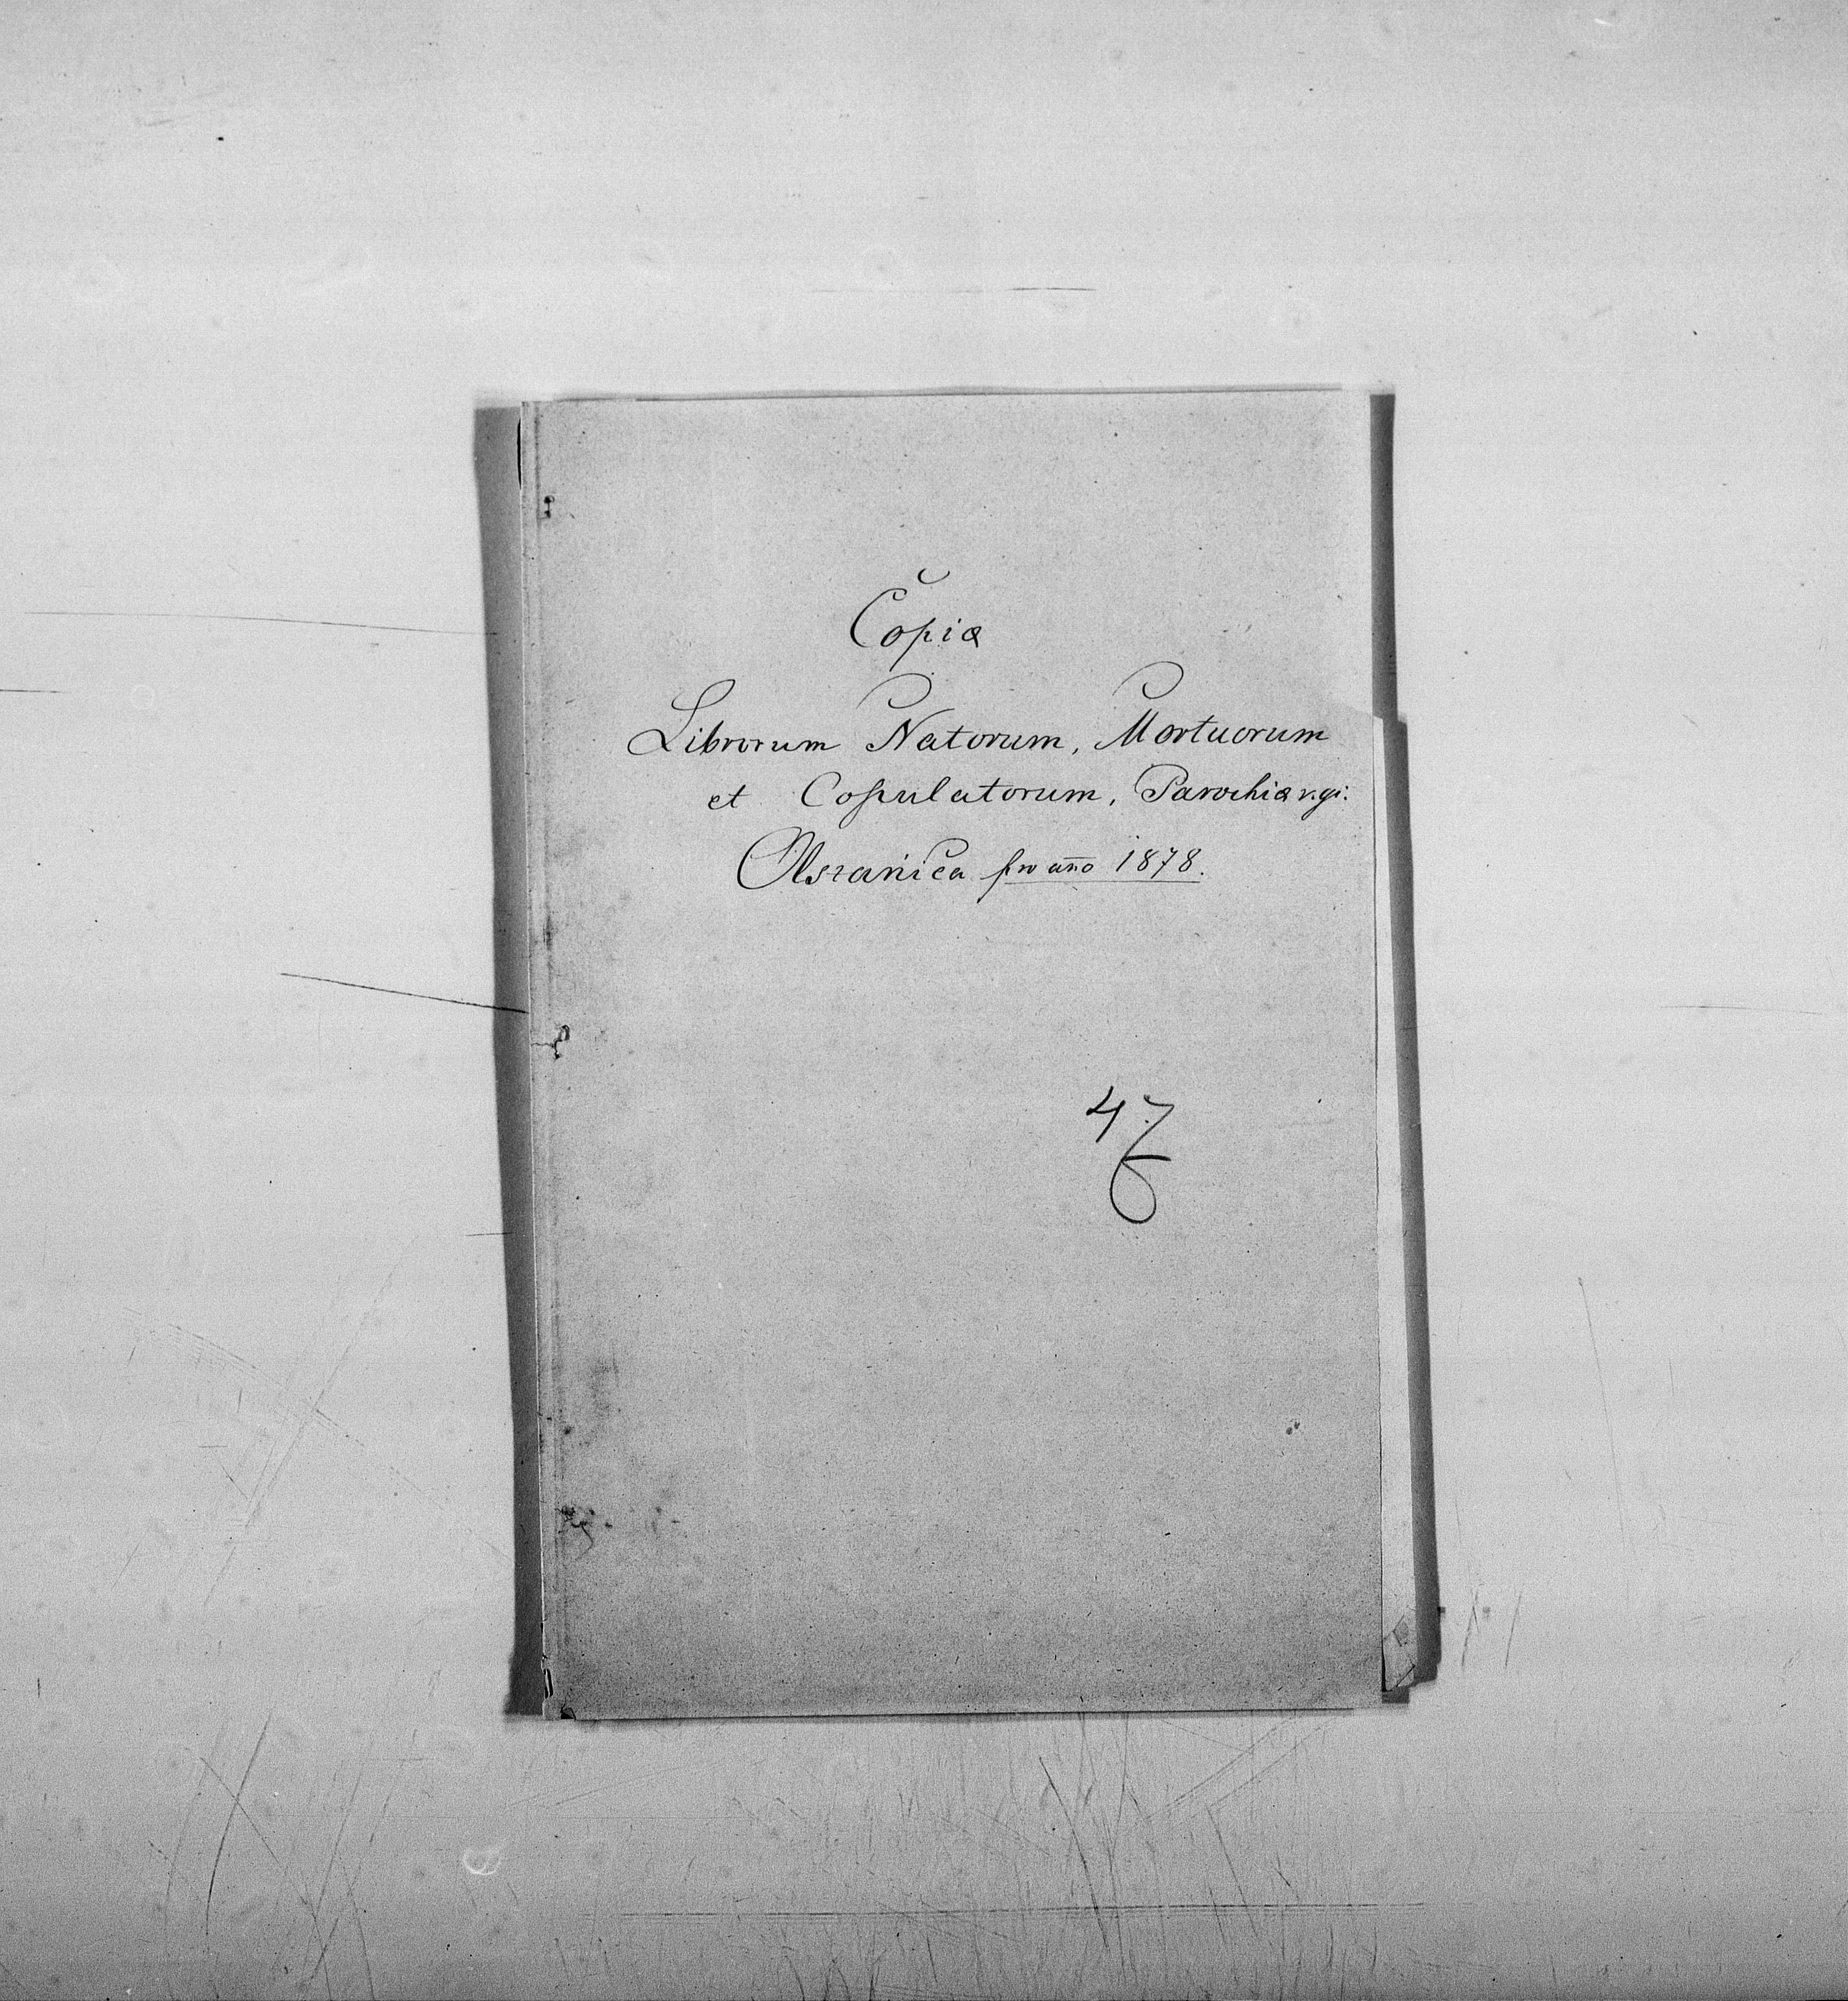 Copiæ
Librorum Natorum, Mortuorum
et Copulatorum, Parochiæ r. gr:
Olszanica pro año 1878.
47
6